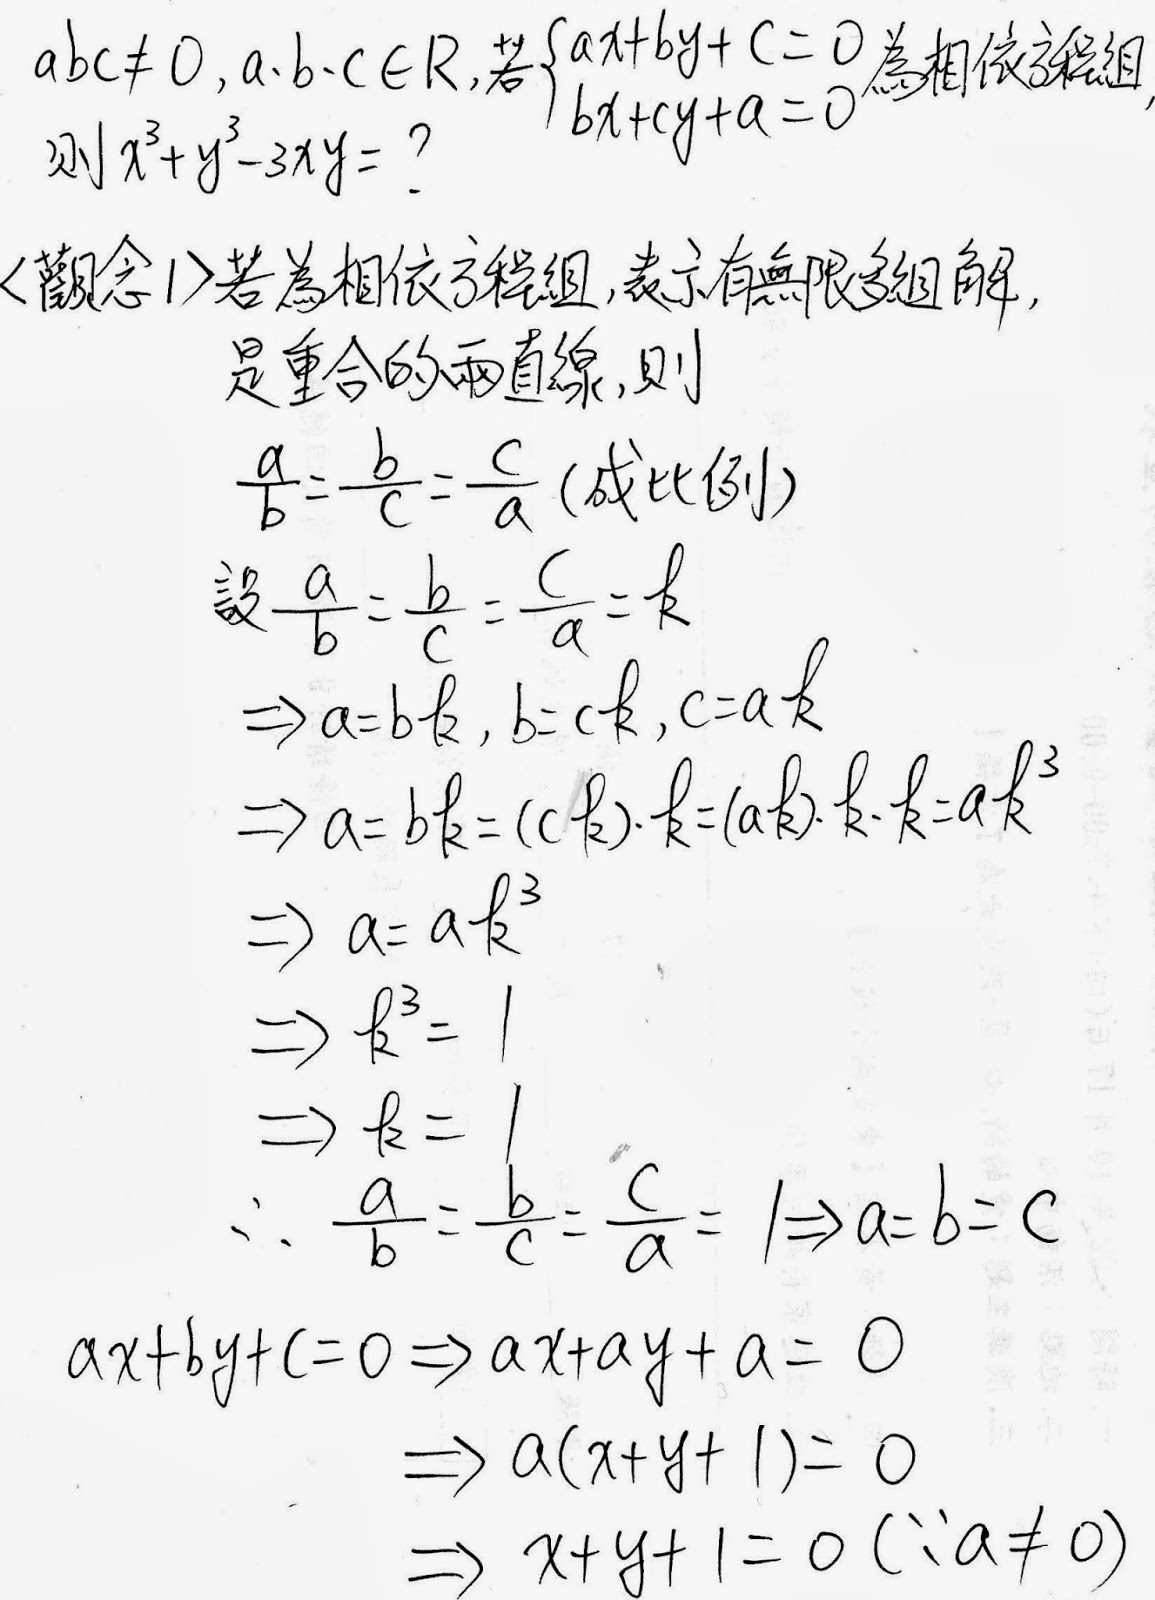 abc≠0, a、b、c∈R, 若{ax+by+c=0
bx+cy+a=0 為相依方程組,
則x³+y³-3xy=?
<觀念1>若為相依方程組,表示有無限多組解,
是重合的兩直線,則
a/b=b/c=c/a (成比例)
設 a/b=b/c=c/a=k
⇒a=bk, b=ck, c=ak
⇒a=bk=(ck)·k=(ak)·k·k=ak³
⇒ a=ak³
⇒ k³=1
⇒ k=1
∴ a/b=b/c=c/a=1⇒a=b=c
ax+by+c=0⇒ax+ay+a=0
⇒a(x+y+1)=0
⇒ x+y+1=0 (∵a≠0)